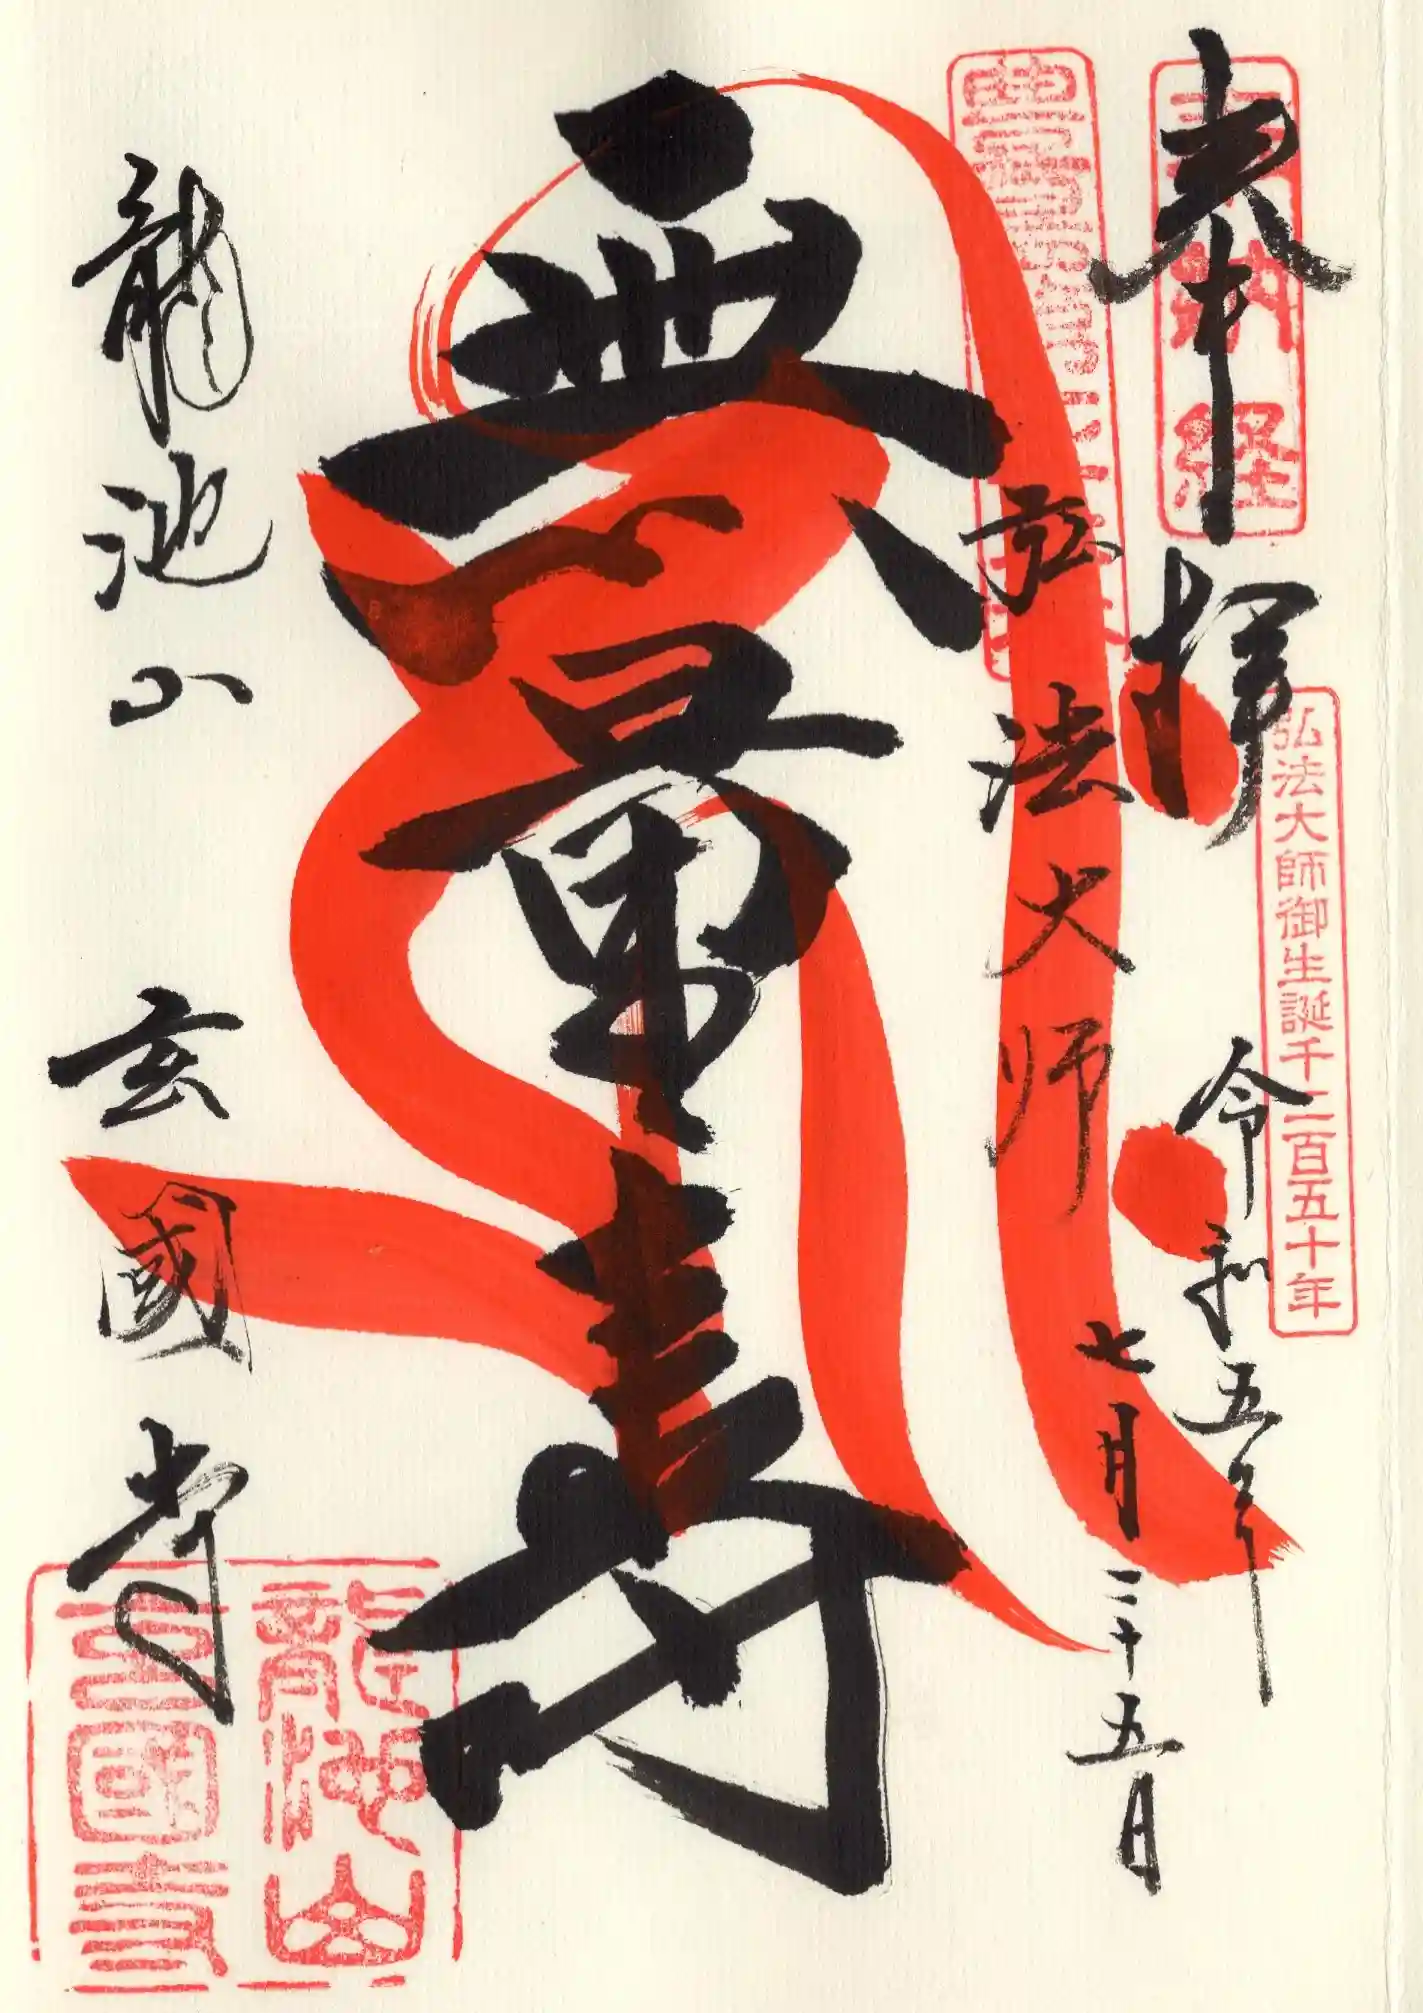 奉拝
奉納経
弘法大師御生誕千二百五十年
令和五年
七月二十五日
弘法大師
無量寿
龍池山 玄國寺
龍池山
玄國寺